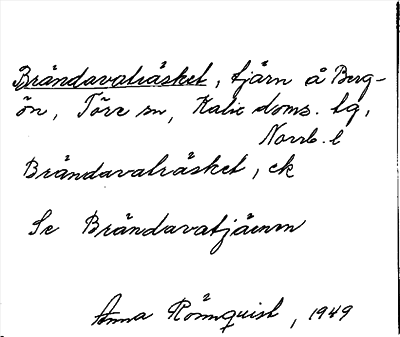 Brändavaträsket, tjärn å Berg-
ön, Töre sn, Kalix doms. tg,
Norrb. l
Brändavaträsket, ck
Se Brändavatjärnen
Anna Rönnquist, 1949